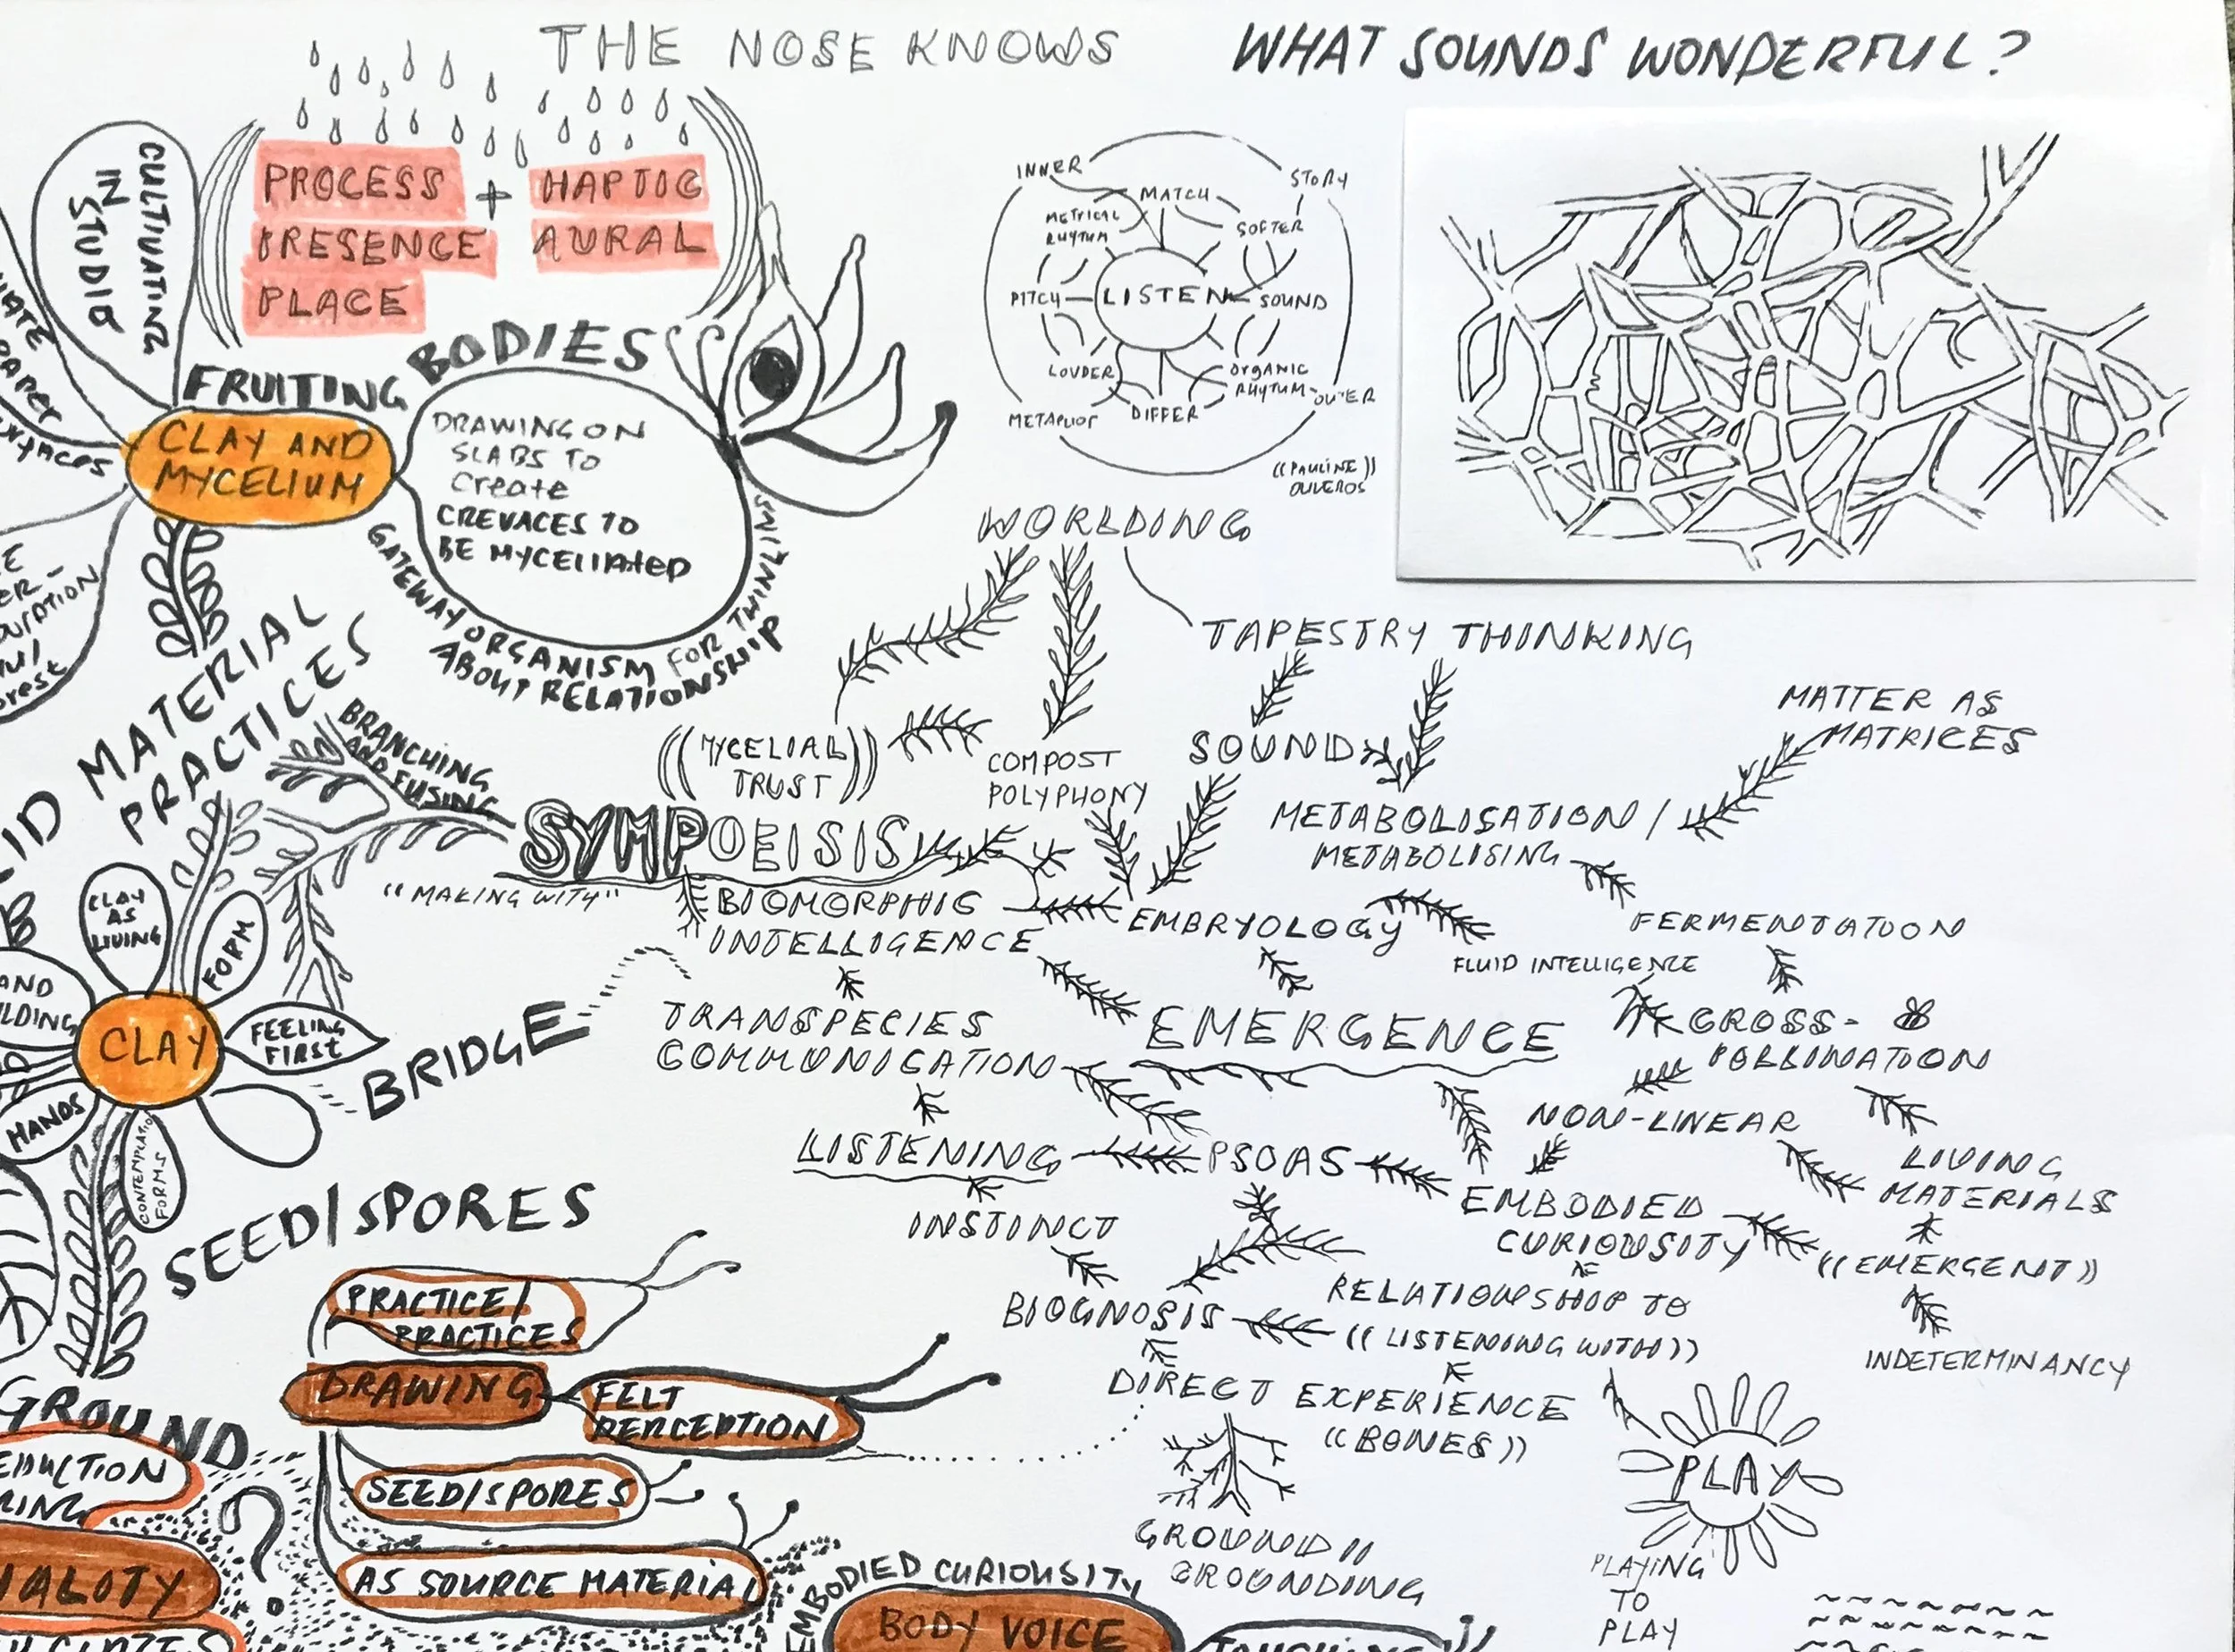 THE NOSE KNOWS
WHAT SOUNDS WONDERFUL?
CULTIVATING
IN
STUDIO
PROCESS + HAPTIC
PRESENCE AURAL
PLACE
FRUITING BODIES
CLAY AND
MYCELIUM
DRAWING ON
SLABS TO
create
CREVACES TO
BE MYCELIATED
GATEWAY ORGANISM FOR THINKING
ABOUT RELATIONSHIP
INNER
STORY
MATCH
METRICAL
RHYTHM
SOFTER
PITCH
LISTEN
SOUND
LOUDER
ORGANIC
RHYTHM
OUTER
METAPHOR
DIFFER
((PAULINE))
OLIVEROS
WORLDING
TAPESTRY THINKING
MATTER AS
MATRICES
((MYCELIAL
TRUST))
COMPOST
POLYPHONY
SOUND
METABOLISATION /
METABOLISING
MATERIAL
PRACTICES
BRANCHING
AND FUSING
SYMPOEISIS
"MAKING WITH"
BIOMORPHIC
INTELLIGENCE
EMBRYOLOGY
FERMENTATION
FLUID INTELLIGENCE
CLAY
AS
LIVING
FORM
AND
CLAY
FEELING
FIRST
HANDS
CONTEMPLATIO
FORMS
BRIDGE
TRANSPECIES
COMMUNICATION
EMERGENCE
CROSS-
POLLINATION
NON-LINEAR
LISTENING
PSOAS
LIVING
MATERIALS
EMBODIED
CURIOUSITY
((EMERGENT))
INSTINCT
SEED/SPORES
BIOGNOSIS
RELATIONSHIP TO
((LISTENING WITH))
INDETERMINANCY
PRACTICE/
PRACTICES
DRAWING
FELT
PERCEPTION
DIRECT EXPERIENCE
((BONES))
GROUND
SEED/SPORES
PLAY
AS SOURCE MATERIAL
GROUND //
GROUNDING
PLAYING
TO
PLAY
EMBODIED CURIOUSITY
BODY VOICE